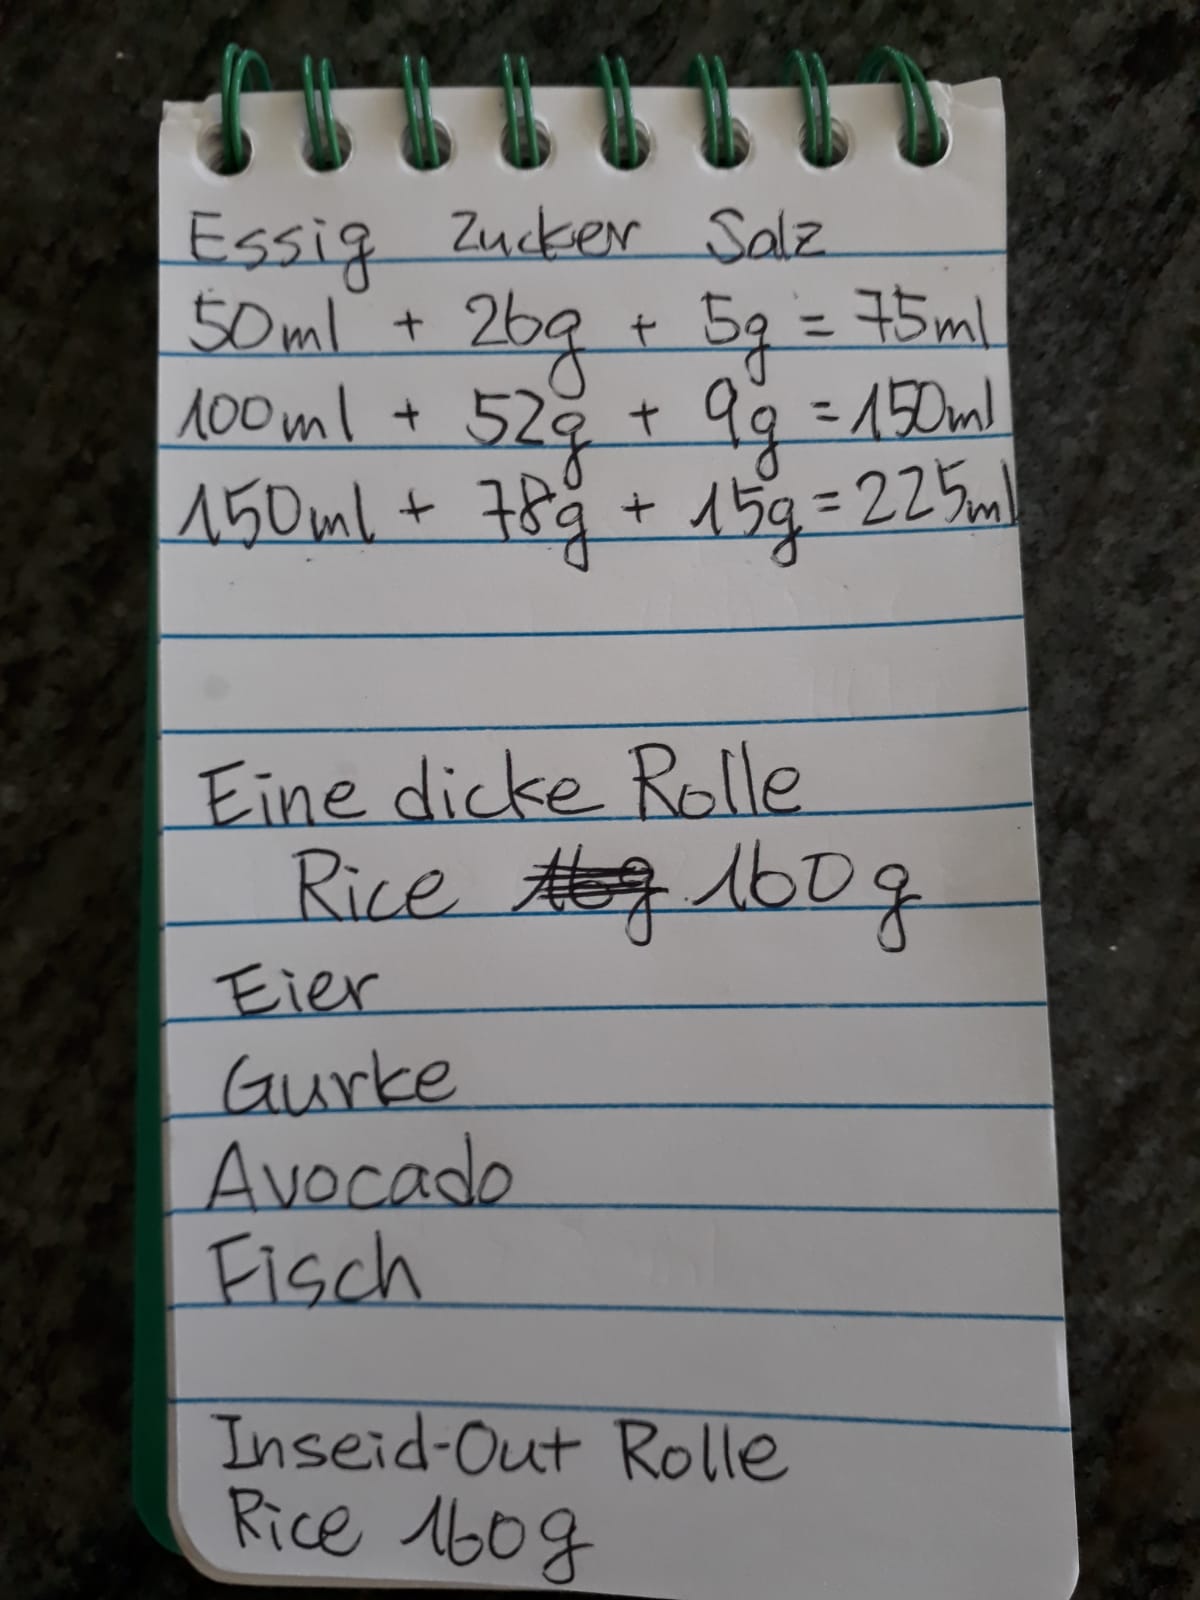 Essig Zucker Salz
50ml + 26g + 5g = 75ml
100ml + 52g + 9g = 150ml
150ml + 78g + 15g = 225ml
Eine dicke Rolle
Rice 16g 160g
Eier
Gurke
Avocado
Fisch
Inseid-Out Rolle
Rice 160g